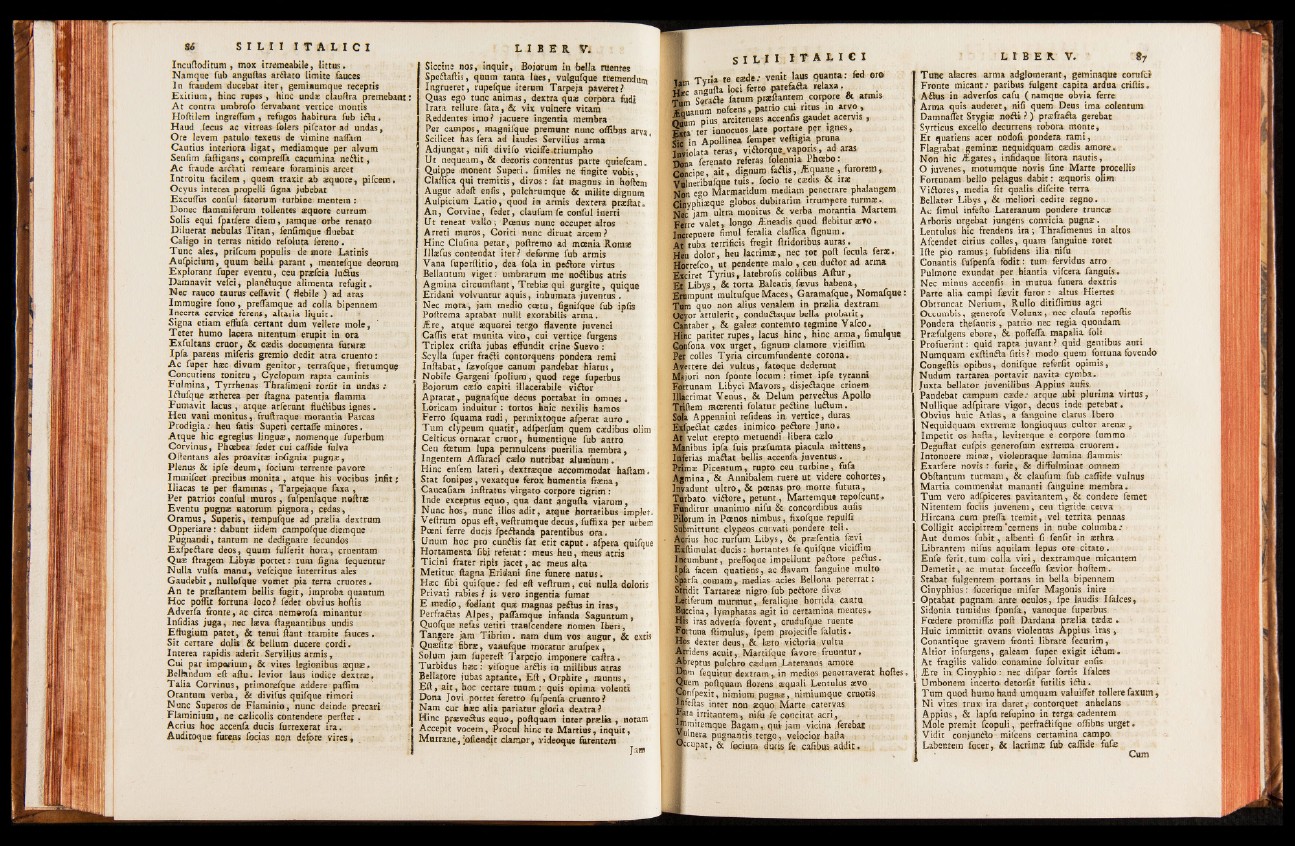 86 SILII ITALICI
Incustoditum, mox irremeabile, littus.
Namque sub angustas arctato limite fauces
In fraudem ducebat iter, geminumque receptis
Exitium, hinc rupes, hinc undæ claustra premebant:
At contra umbroso servabant vertice montis
Hostilem ingressum, refugos habitura sub ictu.
Haud secus ac vitreas solers piscator ad undas,
Ore levem patulo texens de vimine nassam
Cautius interiora ligat, mediamque per alvum
Sensim fastigans, compressa cacumina nectit,
Ac fraude arctati remeare foraminis arcet
Introitu facilem, quem traxit ab æquore, piscem.
Ocyus interea propelli signa jubebat
Excussus consul fatorum turbine mentem:
Donec flammiferum tollentes æquore currum
Solis equi sparsere diem, jamque orbe renato
Diluerat nebulas Titan, sensimque fluebat
Caligo in terras nitido resoluta sereno.
Tunc ales, priscum populis de more Latinis
Auspicium, quum bella parant, mentesque deorum
Explorant super eventu, ceu præscia luctus
Damnavit vesci, planctuque alimenta refugit.
Nec rauco taurus cessavit (flebile) ad aras
Immugire sono, pressamque ad colla bipennem
Incerta cervice ferens, altaria liquit.
Signa etiam effusa certant dum vellere mole,
Teter humo lacera nitentum erupit in ora
Exsultans cruor, & cædis documenta futuræ
Ipsa parens miseris gremio dedit atra cruento:
Ac super hæc divum genitor, terrasque, fretumque
Concutiens tonitru, Cyclopum rapta caminis
Fulmina, Tyrrhenas Thrasimeni torsit in undas:
Ictusque ætherea per stagna patentia flamma
Fumavit lacus, atque arserunt fluctibus ignes.
Heu vani monitus, frustraque morantia Parcas
Prodigia: heu fatis Superi certasse minores.
Atque hic egregius linguæ, nomenque superbum
Corvinus, Phœbea sedet cui casside fulva
Ostentans ales proavitæ insignia pugnæ,
Plenus & ipse deum, socium terrente pavore
Immiscet precibus monita, atque his vocibus infit;
Iliacas te per flammas, Tarpejaque saxa,
Per patrios consul muros, suspensaque nostræ
Eventu pugnæ natorum pignora, cedas,
Oramus, Superis, tempusque ad prælia dextrum
Opperiare: dabunt iidem camposque diemque
Pugnandi, tantum ne dedignare secundos
Exspectare deos, quum fulserit hora, cruentam
Quæ stragem Libyæ portet: tum signa sequentur
Nulla vulsa manu, vescique interritus ales
Gaudebit, nullosque vomet pia terra cruores.
An te præstantem bellis fugit, improba quantum
Hoc possit fortuna loco? sedet obvius hostis
Adversa fronte, ac circa nemorosa minantur
Insidias juga, nec læva stagnantibus undis
Effugium patet, & tenui stant tramite fauces.
Sit certare dolis & bellum ducere cordi.
Interea rapidis aderit Servilius armis,
Cui par imperium, & vires legionibus æquæ.
Bellandum est astu. levior laus indice dextræ.
Talia Corvinus, primoresque addere passim
Orantum verba, & divisus quisque timori
Nunc Superos de Flaminio, nunc deinde precari
Flaminium, ne cælicolis contendere perstet.
Acrius hoc accensa ducis surrexerat ira.
Auditoque furens socias non defore vires,
LIBER V.
Siccine nos, inquit, Bojorum in bella ruentes
Spectastis, quum tanta lues, vulgusque tremendum
Ingrueret, rupesque iterum Tarpeja paveret?
Quas ego tunc animas, dextra quæ corpora fudi
Irata tellure sata, & vix vulnere vitam
Reddentes imo? jacuere ingentia membra
Per campos, magnisque premunt nunc ossibus arva.
Scilicet has sera ad laudes Servilius arma
Adjungat, nisi diviso vicisse triumpho
Ut nequeam, & decoris contentus parte quiescam.
Quippe monent Superi. similes ne fingite vobis,
Classica qui tremitis, divos: sat magnus in hostem
Augur adest ensis, pulchrumque & milite dignum
Auspicium Latio, quod in armis dextera præstat.
An, Corvine, sedet, clausum se consul inerti
Ut teneat vallo; Pœnus nunc occupet altos
Arreti muros, Coriti nunc diruat arcem?
Hinc Clusina petat, postremo ad mœnia Romæ
Illæsus contendat iter? deforme sub armis
Vana superstitio, dea sola in pectore virtus
Bellantum viget: umbrarum me noctibus atris
Agmina circumstant, Trebiæ qui gurgite, quique
Eridani volvuntur aquis, inhumata juventus.
Nec mora, jam medio cœtu, signisque sub ipsis
Postrema aptabat nulli exorabilis arma.
Ære, atque æquorei tergo flavente juvenci
Cassis erat munita viro, cui vertice surgens
Triplex crista jubas effundit crine Suevo:
Scylla super fracti contorquens pondera remi
Instabat, sævosque canum pandebat hiatus,
Nobile Gargeni spolium, quod rege superbus
Bojorum cæso capiti illacerabile victor
Aptarat, pugnasque decus portabat in omnes.
Loricam induitur: tortos hinc nexilis hamos
Ferro squama rudi, permixtoque asperat auro.
Tum clypeum quatit, adspersum quem cædibus olim
Celticus ornarat cruor, humentique sub antro
Ceu fœtum lupa permulcens puerilia membra,
Ingentem Assaraci cælo nutribat alumnum.
Hinc ensem lateri, dextræque accommodat hastam.
Stat sonipes, vexatque ferox humentia fræna,
Caucasiam instratus virgato corpore tigrim:
Inde exceptus equo, qua dant angusta viarum,
Nunc hos, nunc illos adit, atque hortatibus implet.
Vestrum opus est, vestrumque decus, suffixa per urbem
Pœni ferre ducis spectanda parentibus ora.
Unum hoc pro cunctis sat erit caput. aspera quisque
Hortamenta sibi referat: meus heu, meus atris
Ticini frater ripis jacet, ac meus alta
Metitur stagna Eridani sine funere natus.
Hæc sibi quisque: sed est vestrum, cui nulla doloris
Privati rabies? is vero ingentia sumat
E medio, fodiant quæ magnas pectus in iras,
Perfractas Alpes, passamque infanda Saguntum,
Quosque nefas vetiti transcendere nomen Iberi,
Tangere jam Tibrim. nam dum vos augur, & extis
Quæsitæ fibræ, vanusque moratur aruspex,
Solum jam superest Tarpejo imponere castra.
Turbidus hæc: visoque arctis in millibus atras
Bellatore jubas aptante, Est, Orphite, munus,
Est, ait, hoc certare tuum: quis opima volenti
Dona Jovi portet feretro suspensa cruento?
Nam cur hæc alia pariatur gloria dextra?
Hinc prævectus equo, postquam inter prælia, notam
Accepit vocem, Procul hinc te Martius, inquit,
Murrane, ostendit clamor, videoque furentem
Jam
SILII ITALICI
Jam Tyria te cæde: venit laus quanta: sed oro
Hæc angusta loci ferro patefacta relaxa.
Tum Soracte satum præstantem corpore & armis
Æquanum noscens, patrio cui ritus in arvo,
Quum pius arcitenens accensis gaudet acervis,
Exta ter innocuos late portare per ignes,
Sic in Apollinea semper vestigia pruna
Inviolata teras, victorque vaporis, ad aras
Dona serenato referas solennia Phœbo:
Concipe, ait, dignum factis, Æquane, furorem,
Vulneribusque tuis. socio te cædis & iræ
Non ego Marmaridum mediam penetrare phalangem
Cinyphiæque globos dubitarim irrumpere turmæ.
Nec jam ultra monitus & verba morantia Martem
Ferre valet, longo Æneadis quod flebitur ævo.
Increpuere simul feralia classica signum.
At tuba terrificis fregit stridoribus auras.
Heu dolor, heu lacrimæ, nec tot post secula seræ.
Horresco, ut pendente malo, ceu ductor ad arma
Exciret Tyrius, latebrosis collibus Astur,
Et Libys, & torta Balearis sævus habena,
Erumpunt multusque Maces, Garamasque, Nomasque:
Tum quo non alius venalem in prælia dextram
Ocyor attulerit, conductaque bella probarit,
Cantaber, & galeæ contemto tegmine Vasco.
Hinc pariter rupes, lacus hinc, hinc arma, simulque
Consona vox urget, signum clamore vicissim
Per colles Tyria circumfundente corona.
Avertere dei vultus, fatoque dederunt
Majori non sponte locum: timet ipse tyranni
Fortunam Libyci Mavors, disjectaque crinem
Illacrimat Venus, & Delum pervectus Apollo
Tristem mœrenti solatur pectine luctum.
Sola Appennini residens in vertice, duras
Exspectat cædes inimico pectore Juno.
At velut erepto metuendi libera cælo
Manibus ipsa suis præsumta piacula mittens,
Inferias mactat bellis accensa juventus.
Primæ Picentum, rupto ceu turbine, fusa
Agmina, & Annibalem ruere ut videre cohortes,
Invadunt ultro, & pœnas pro morte futura,
Turbato victore, petunt, Martemque reposcunt.
Funditur unanimo nisu & concordibus ausis
Pilorum in Pœnos nimbus, fixosque repulsi
Submittunt clypeos curvati pondere teli.
Acrius hoc rursum Libys, & præsentia sævi
Exstimulat ducis: hortantes se quisque vicissim
Incumbunt, pressoque impellunt pectore pectus.
Ipsa facem quatiens, ac flavam sanguine multo
Sparsa comam, medias acies Bellona pererrat:
Stridit Tartareæ nigro sub pectore divæ
Letiferum murmur, feralique horrida cantu
Buccina, lymphatas agit in certamina mentes.
His iras adversa fovent, crudusque ruente
Fortuna stimulus, spem projecisse salutis.
Hos dexter deus, & læto victoria vultu
Arridens acuit, Martisque favore fruuntur.
Abreptus pulchro cædum Lateranus amore
Dum sequitur dextram, in medios penetraverat hostes.
Quem postquam florens æquali Lentulus ævo
Conspexit, nimium pugnæ, nimiumque cruoris
Infestas inter non æquo Marte catervas
Fata irritantem, nisu se concitat acri,
Immitemque Bagam, qui jam vicina ferebat
Vulnera pugnantis tergo, velocior hasta
Occupat, & socium duris se casibus addit.
LIBER V. 87
Tunc alacres arma adglomerant, geminaque coruscæ
Fronte micant: paribus fulgent capita ardua cristis.
Actus in adversos casu (namque obvia ferre
Arma quis auderet, nisi quem Deus ima colentum
Damnasset Stygiæ nocti?) præfracta gerebat
Syrticus excelso decurrens robora monte,
Et quatiens acer nodosi pondera rami,
Flagrabat geminæ nequidquam cædis amore.
Non hic Ægates, infidaque litora nautis,
O juvenes, motumque novis sine Marte procellis
Fortunam bello pelagus dabit: æquoris olim
Victores, media sit qualis discite terra
Bellator Libys, & meliori cedite regno.
Ac simul infesto Lateranum pondere truncæ
Arboris urgebat jungens convicia pugnæ.
Lentulus hic frendens ira; Thrasimenus in altos
Ascendet citius colles, quam sanguine roret
Iste pio ramus; subsidens ilia nisu
Conantis suspensa fodit: tum fervidus atro
Pulmone exundat per hiantia viscera sanguis.
Nec minus accensis in mutua funera dextris
Parte alia campi sævit furor: altus Hiertes
Obtruncat Nerium, Rullo ditissimus agri
Occumbis, generose Volunx, nec clausa repostis
Pondera thesauris, patrio nec regia quondam
Præfulgens ebore, & possessa mapalia soli
Profuerint: quid rapta juvant? quid gentibus auri
Numquam exstincta sitis? modo quem fortuna fovendo
Congestis opibus, donisque refersit opimis,
Nudum tartarea portavit navita cymba.
Juxta bellator juvenilibus Appius ausis
Pandebat campum cæde: atque ubi plurima virtus,
Nullique adspirare vigor, decus inde petebat.
Obvius huic Atlas, a sanguine clarus Ibero
Nequidquam extremæ longinquus cultor arenæ,
Impetit os hasta, leviterque e corpore summo
Degustat cuspis generosum extrema cruorem.
Intonuere minæ, violentaque lumina flammis
Exarsere novis: furit, & diffulminat omnem
Obstantum turmam, & clausum sub casside vulnus
Martia commendat mananti sanguine membra.
Tum vero adspiceres pavitantem, & condere semet
Nitentem sociis juvenem, ceu tigride cerva
Hircana cum pressa tremit, vel territa pennas
Colligit accipitrem cernens in nube columba:
Aut dumos subit, albenti si sensit in æthra
Librantem nisus aquilam lepus ore citato.
Ense ferit tum colla viri, dextramque micantem
Demetit, ac mutat successu sævior hostem.
Stabat fulgentem portans in bella bipennem
Cinyphius: socerique miser Magonis inire
Optabat pugnam ante oculos, spe laudis Isalces,
Sidonia tumidus sponsa, vanoque superbus
Fœdere promissæ post Dardana prælia tædæ.
Huic immittit ovans violentas Appius iras,
Conantique gravem fronti librare securim,
Altior insurgens, galeam super exigit ictum.
At fragilis valido conamine solvitur ensis
Ære in Cinyphio: nec dispar fortis Isalces
Umbonem incerto detorsit futilis ictu.
Tum quod humo haud umquam valuisset tollere saxum,
Ni vires trux ira daret, contorquet anhelans
Appius, & lapsu resupino in terga cadentem
Mole premit scopuli, perfractisque ossibus urget.
Vidit conjuncto miscens certamina campo
Labentem socer, & lacrimæ sub casside fusæ
Cum